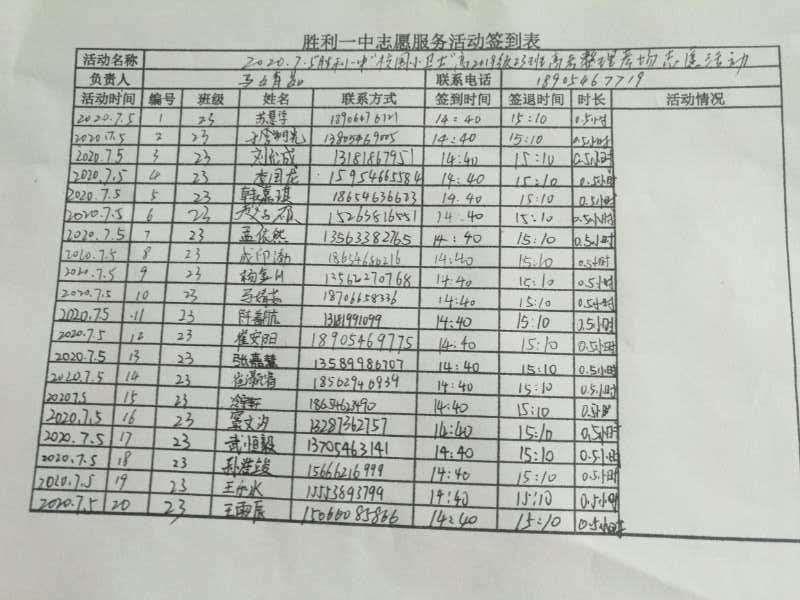 胜利一中志愿服务活动签到表
活动名称 2020.7.5胜利一中"校园小卫士"高2019级23班高考整理考场志愿活动
负责人 联系电话 18905467719
活动时间 编号 班级 姓名 联系方式 签到时间 签退时间 时长 活动情况
2020.7.5 1 23 14:40 15:10 0.5小时
2020.7.5 2 23 13805469005 14:40 15:10 0.5小时
2020.7.5 3 23 13181867951 14:40 15:10 0.5小时
2020.7.5 4 23 李国龙 15954665584 14:40 15:10 0.5小时
2020.7.5 5 23 韩嘉琪 18654636623 14:40 15:10 0.5小时
2020.7.5 6 23 14:40 15:10 0.5小时
2020.7.5 7 23 孟依然 13563382765 14:40 15:10 0.5小时
2020.7.5 8 23 成印渤 18654686216 14:40 15:10 0.5小时
2020.7.5 9 23 14:40 15:10 0.5小时
2020.7.5 10 23 18706658336 14:40 15:10 0.5小时
2020.7.5 11 23 13181991099 14:40 15:10 0.5小时
2020.7.5 12 23 崔安阳 18905469775 14:40 15:10 0.5小时
2020.7.5 13 23 张嘉慧 13589986707 14:40 15:10 0.5小时
2020.7.5 14 23 18562946939 14:40 15:10 0.5小时
2020.7.5 15 23 18654623490 14:40 15:10 0.5小时
2020.7.5 16 23 窦文汐 13287362757 14:40 15:10 0.5小时
2020.7.5 17 23 武恒毅 13705463141 14:40 15:10 0.5小时
2020.7.5 18 23 15666216999 14:40 15:10 0.5小时
2020.7.5 19 23 15553693799 14:40 15:10 0.5小时
2020.7.5 20 23 王雨辰 15066085866 14:40 15:10 0.5小时